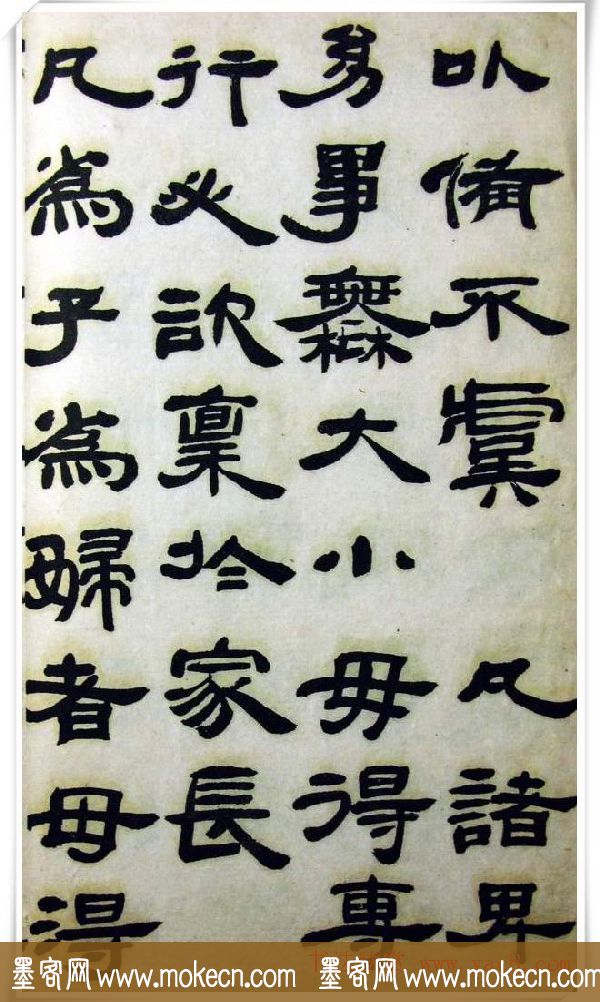 㠯備不虞 凡諸卑
㓜事無大小毋得專
行必欨稟於家長
凡爲子爲婦者毋得
墨客网 www.mokecn.com 墨客网 www.mokecn.com